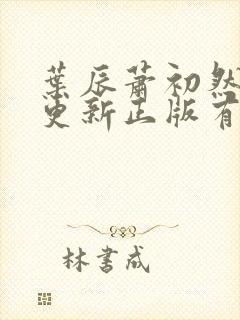 葉辰蕭初然
更新正版有
林書成